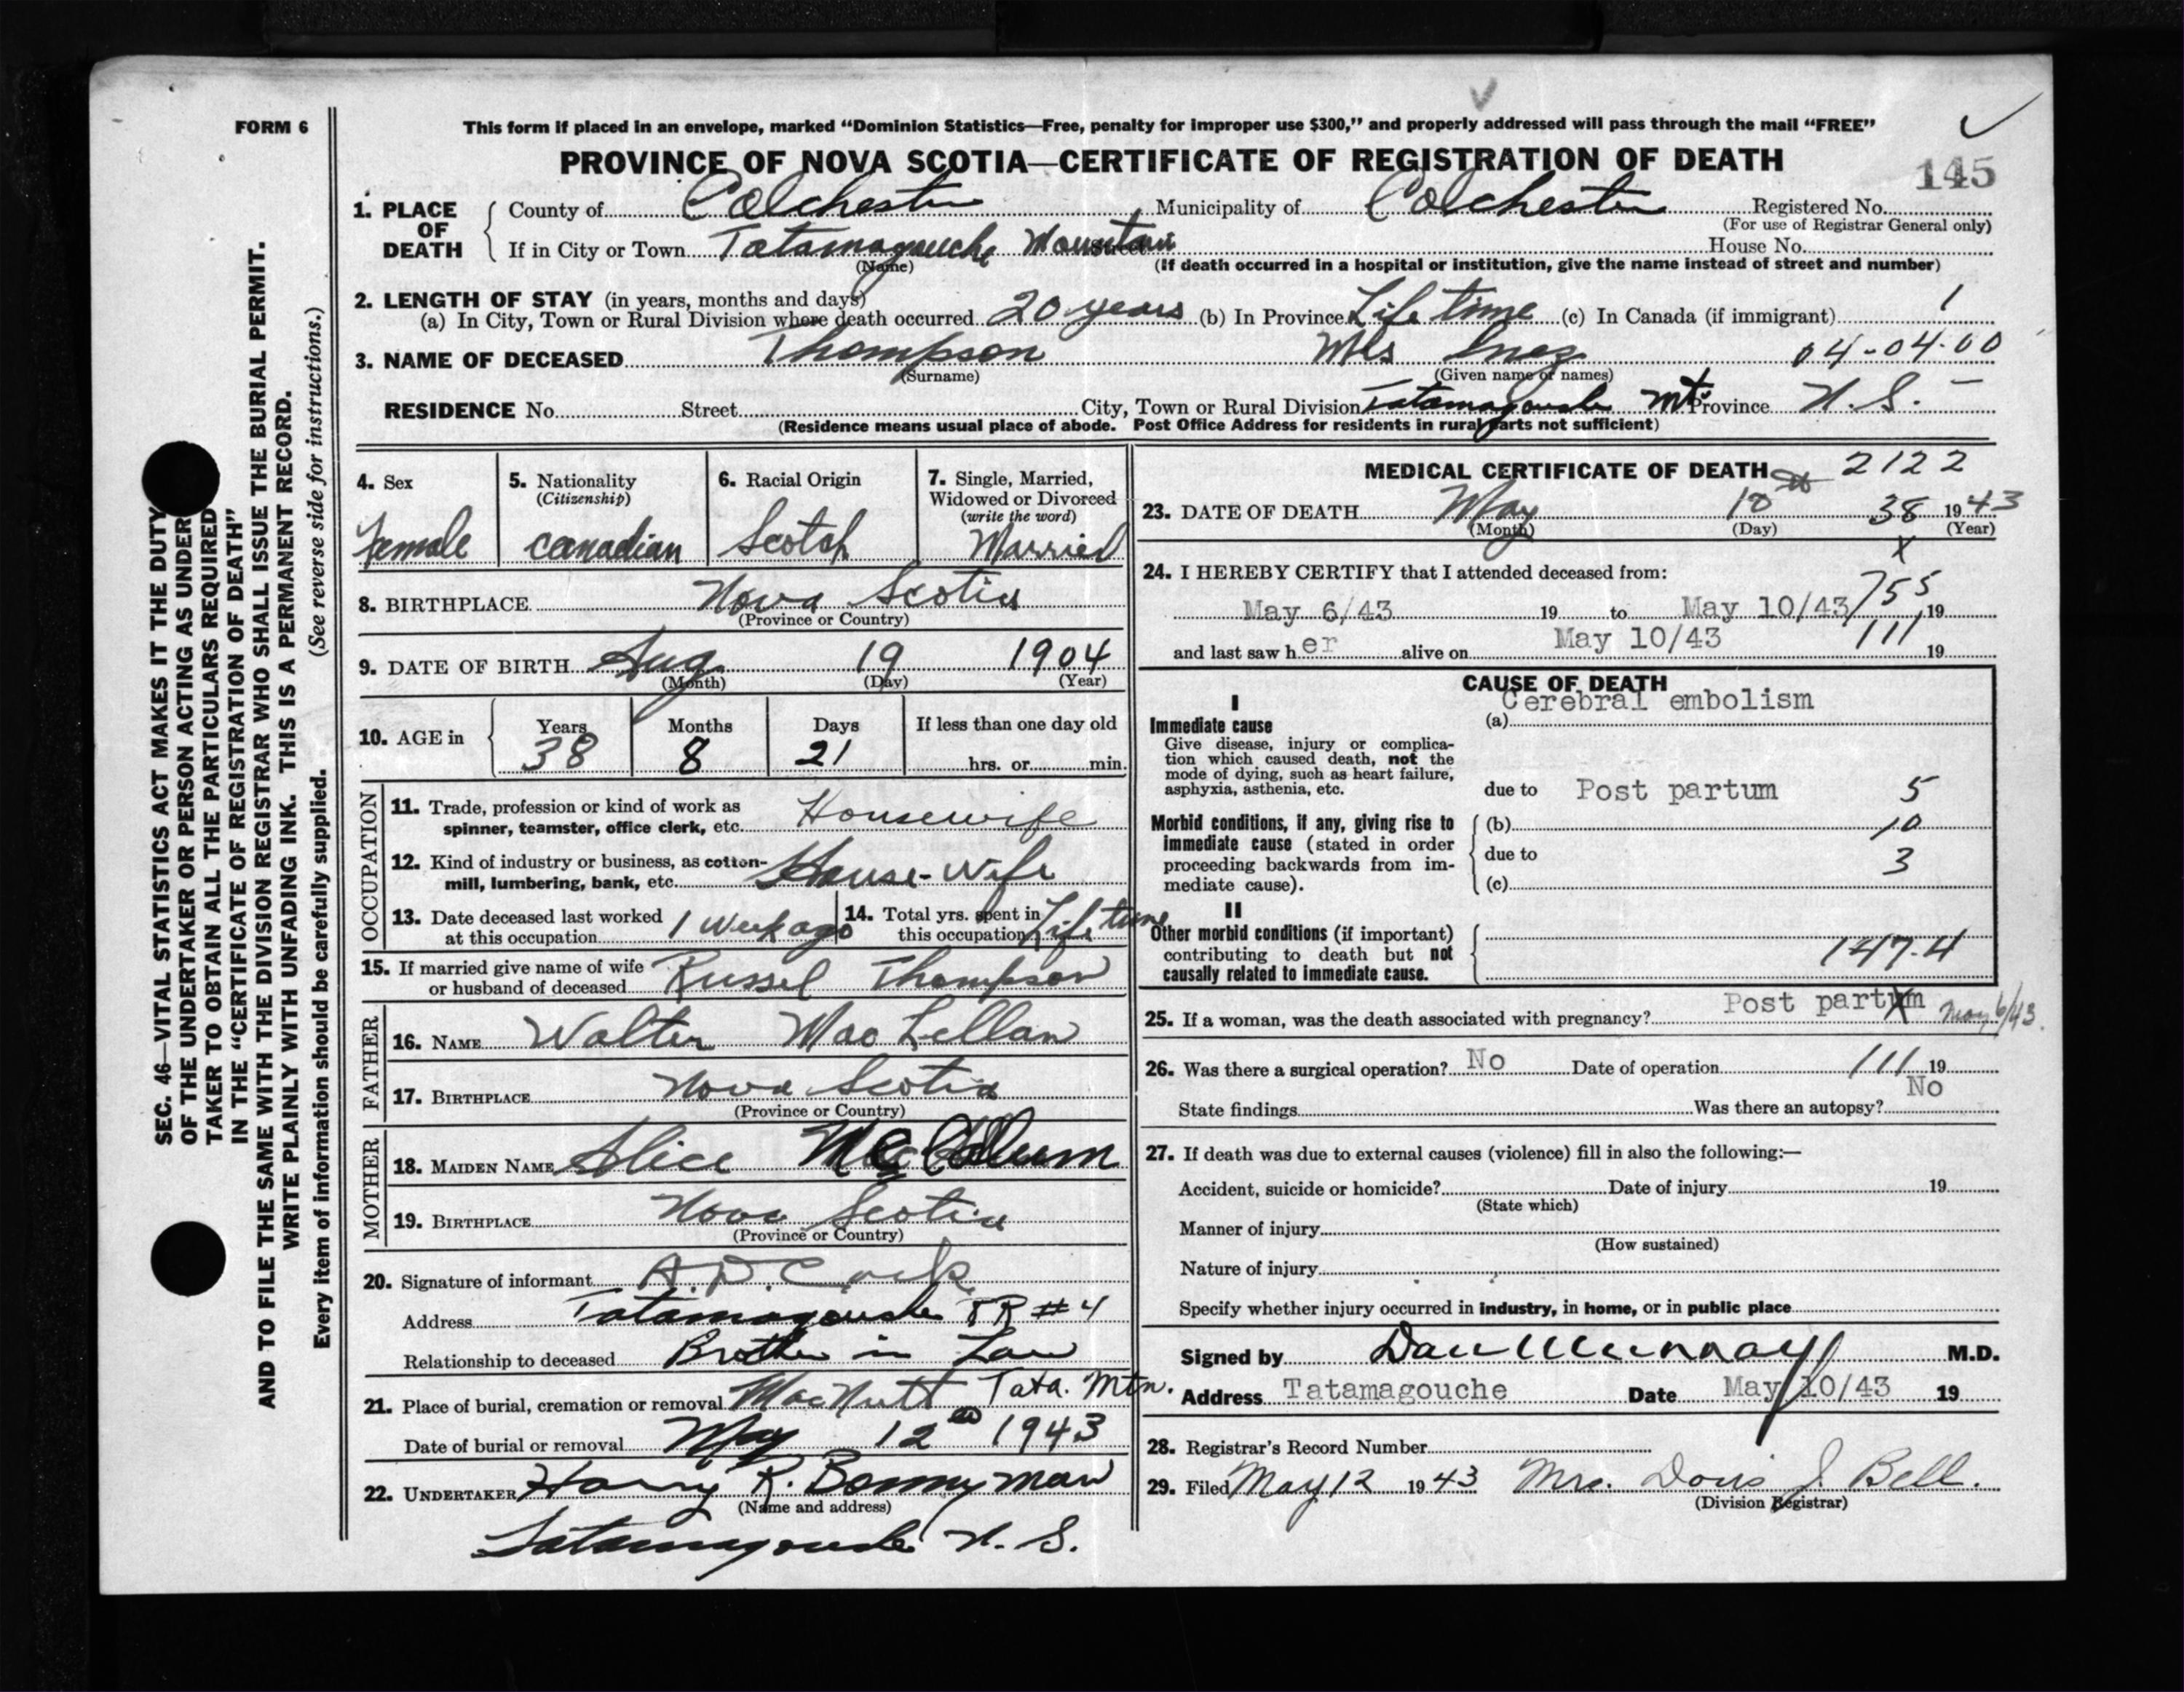 FORM 6
This form if placed in an envelope, marked “Dominion Statistics—Free, penalty for improper use $300,” and properly addressed will pass through the mail “FREE”
PROVINCE OF NOVA SCOTIA—CERTIFICATE OF REGISTRATION OF DEATH
145
1. PLACE OF DEATH
County of Colchester Municipality of Colchester Registered No.
(For use of Registrar General only)
If in City or Town Tatamagouche Mountain Street House No.
(Name) (If death occurred in a hospital or institution, give the name instead of street and number)
2. LENGTH OF STAY (in years, months and days)
(a) In City, Town or Rural Division where death occurred 20 years (b) In Province Life time (c) In Canada (if immigrant) 1
3. NAME OF DECEASED Thompson Mrs Inez 04-04-00
(Surname) (Given name or names)
RESIDENCE No. Street City, Town or Rural Division Tatamagouche Mt. Province N. S. -
(Residence means usual place of abode. Post Office Address for residents in rural parts not sufficient)
4. Sex
Female
5. Nationality
(Citizenship)
Canadian
6. Racial Origin
Scotch
7. Single, Married, Widowed or Divorced
(write the word)
Married
8. BIRTHPLACE Nova Scotia
(Province or Country)
9. DATE OF BIRTH Aug 19 1904
(Month) (Day) (Year)
10. AGE in
Years Months Days If less than one day old
38 8 21 hrs. or min.
OCCUPATION
11. Trade, profession or kind of work as
spinner, teamster, office clerk, etc. Housewife
12. Kind of industry or business, as cotton-
mill, lumbering, bank, etc. House-wife
13. Date deceased last worked
at this occupation 1 week ago
14. Total yrs. spent in
this occupation Life time
15. If married give name of wife
or husband of deceased Russel Thompson
FATHER
16. NAME Walter MacLellan
17. BIRTHPLACE Nova Scotia
(Province or Country)
MOTHER
18. MAIDEN NAME Alice
19. BIRTHPLACE Nova Scotia
(Province or Country)
20. Signature of informant
Address Tatamagouche RR #4
Relationship to deceased Brother in Law
21. Place of burial, cremation or removal MacNutt Tata. Mtn.
Date of burial or removal May 12 1943
22. UNDERTAKER Harry R. Bonnyman
(Name and address)
Tatamagouche N. S.
MEDICAL CERTIFICATE OF DEATH 2122
23. DATE OF DEATH May 10 38 1943
(Month) (Day) (Year)
24. I HEREBY CERTIFY that I attended deceased from:
May 6/43 19 to May 10/43 755 19
and last saw her alive on May 10/43 111 19
CAUSE OF DEATH
I
Immediate cause
Give disease, injury or complica-
tion which caused death, not the
mode of dying, such as heart failure,
asphyxia, asthenia, etc.
(a) Cerebral embolism
due to Post partum 5
Morbid conditions, if any, giving rise to
immediate cause (stated in order
proceeding backwards from im-
mediate cause).
(b) 10
due to 3
(c)
II
Other morbid conditions (if important)
contributing to death but not
causally related to immediate cause.
147.4
25. If a woman, was the death associated with pregnancy? Post partum May 6/43.
26. Was there a surgical operation? No Date of operation 111 19
State findings Was there an autopsy? No
27. If death was due to external causes (violence) fill in also the following:—
Accident, suicide or homicide? Date of injury 19
(State which)
Manner of injury
(How sustained)
Nature of injury
Specify whether injury occurred in industry, in home, or in public place
Signed by Dan Murray M.D.
Address Tatamagouche Date May 10/43 19
28. Registrar's Record Number
29. Filed May 12 1943 Mrs. Doris J. Bell.
(Division Registrar)
SEC. 46—VITAL STATISTICS ACT MAKES IT THE DUTY
OF THE UNDERTAKER OR PERSON ACTING AS UNDER
TAKER TO OBTAIN ALL THE PARTICULARS REQUIRED
IN THE “CERTIFICATE OF REGISTRATION OF DEATH”
AND TO FILE THE SAME WITH THE DIVISION REGISTRAR WHO SHALL ISSUE THE BURIAL PERMIT.
WRITE PLAINLY WITH UNFADING INK. THIS IS A PERMANENT RECORD.
Every item of information should be carefully supplied. (See reverse side for instructions.)